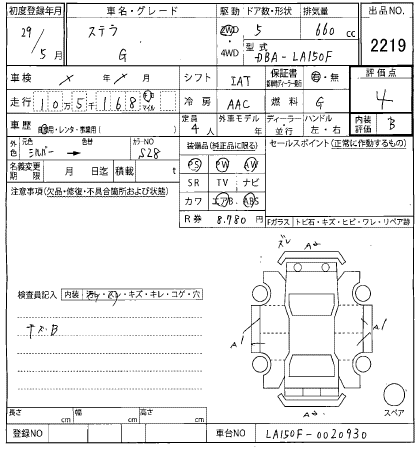 初度登録年月 車名・グレード 駆動 ドア数・形状 排気量 出品NO.
29/5月 ステラ G 2WD 4WD 5 660 cc 2219
型式 DBA-LA150F
車検 / 年 / 月 シフト IAT 保証書 有・無 評価点 4
走行 10万5千168 km マイル 冷房 AAC 燃料 G
車歴 自家用・レンタ・事業用( ) 定員 4人 外車モデル 年 ディーラー 並行 ハンドル 左・右 内装評価 B
外色 元色 シルバー → 色替 カラーNO S28 装備品(純正品に限る) セールスポイント(正常に作動するもの)
PS PW AW
名義変更期限 月 日迄 積載 t SR TV ナビ
注意事項(欠品・修復・不具合箇所および状態) カワ エアB ABS
R券 8.780円 Fガラス トビ石・キズ・ヒビ・ワレ・リペア跡
ズレ A2
検査員記入 内装 汚レ・スレ・キズ・キレ・コゲ・穴
キズB
A1 A1
A2
スペア
長さ cm 幅 cm 高さ cm
登録NO 車台NO LA150F-0020930